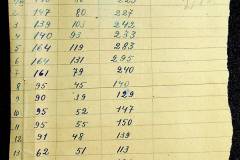 2 147 80 227
3 139 103 242
4 140 93 233
5 164 119 283
6 164 131 295
7 161 79 240
8 95 45 140
9 90 19 129
10 95 52 147
11 95 55 150
12 91 48 139
13 62 51 113